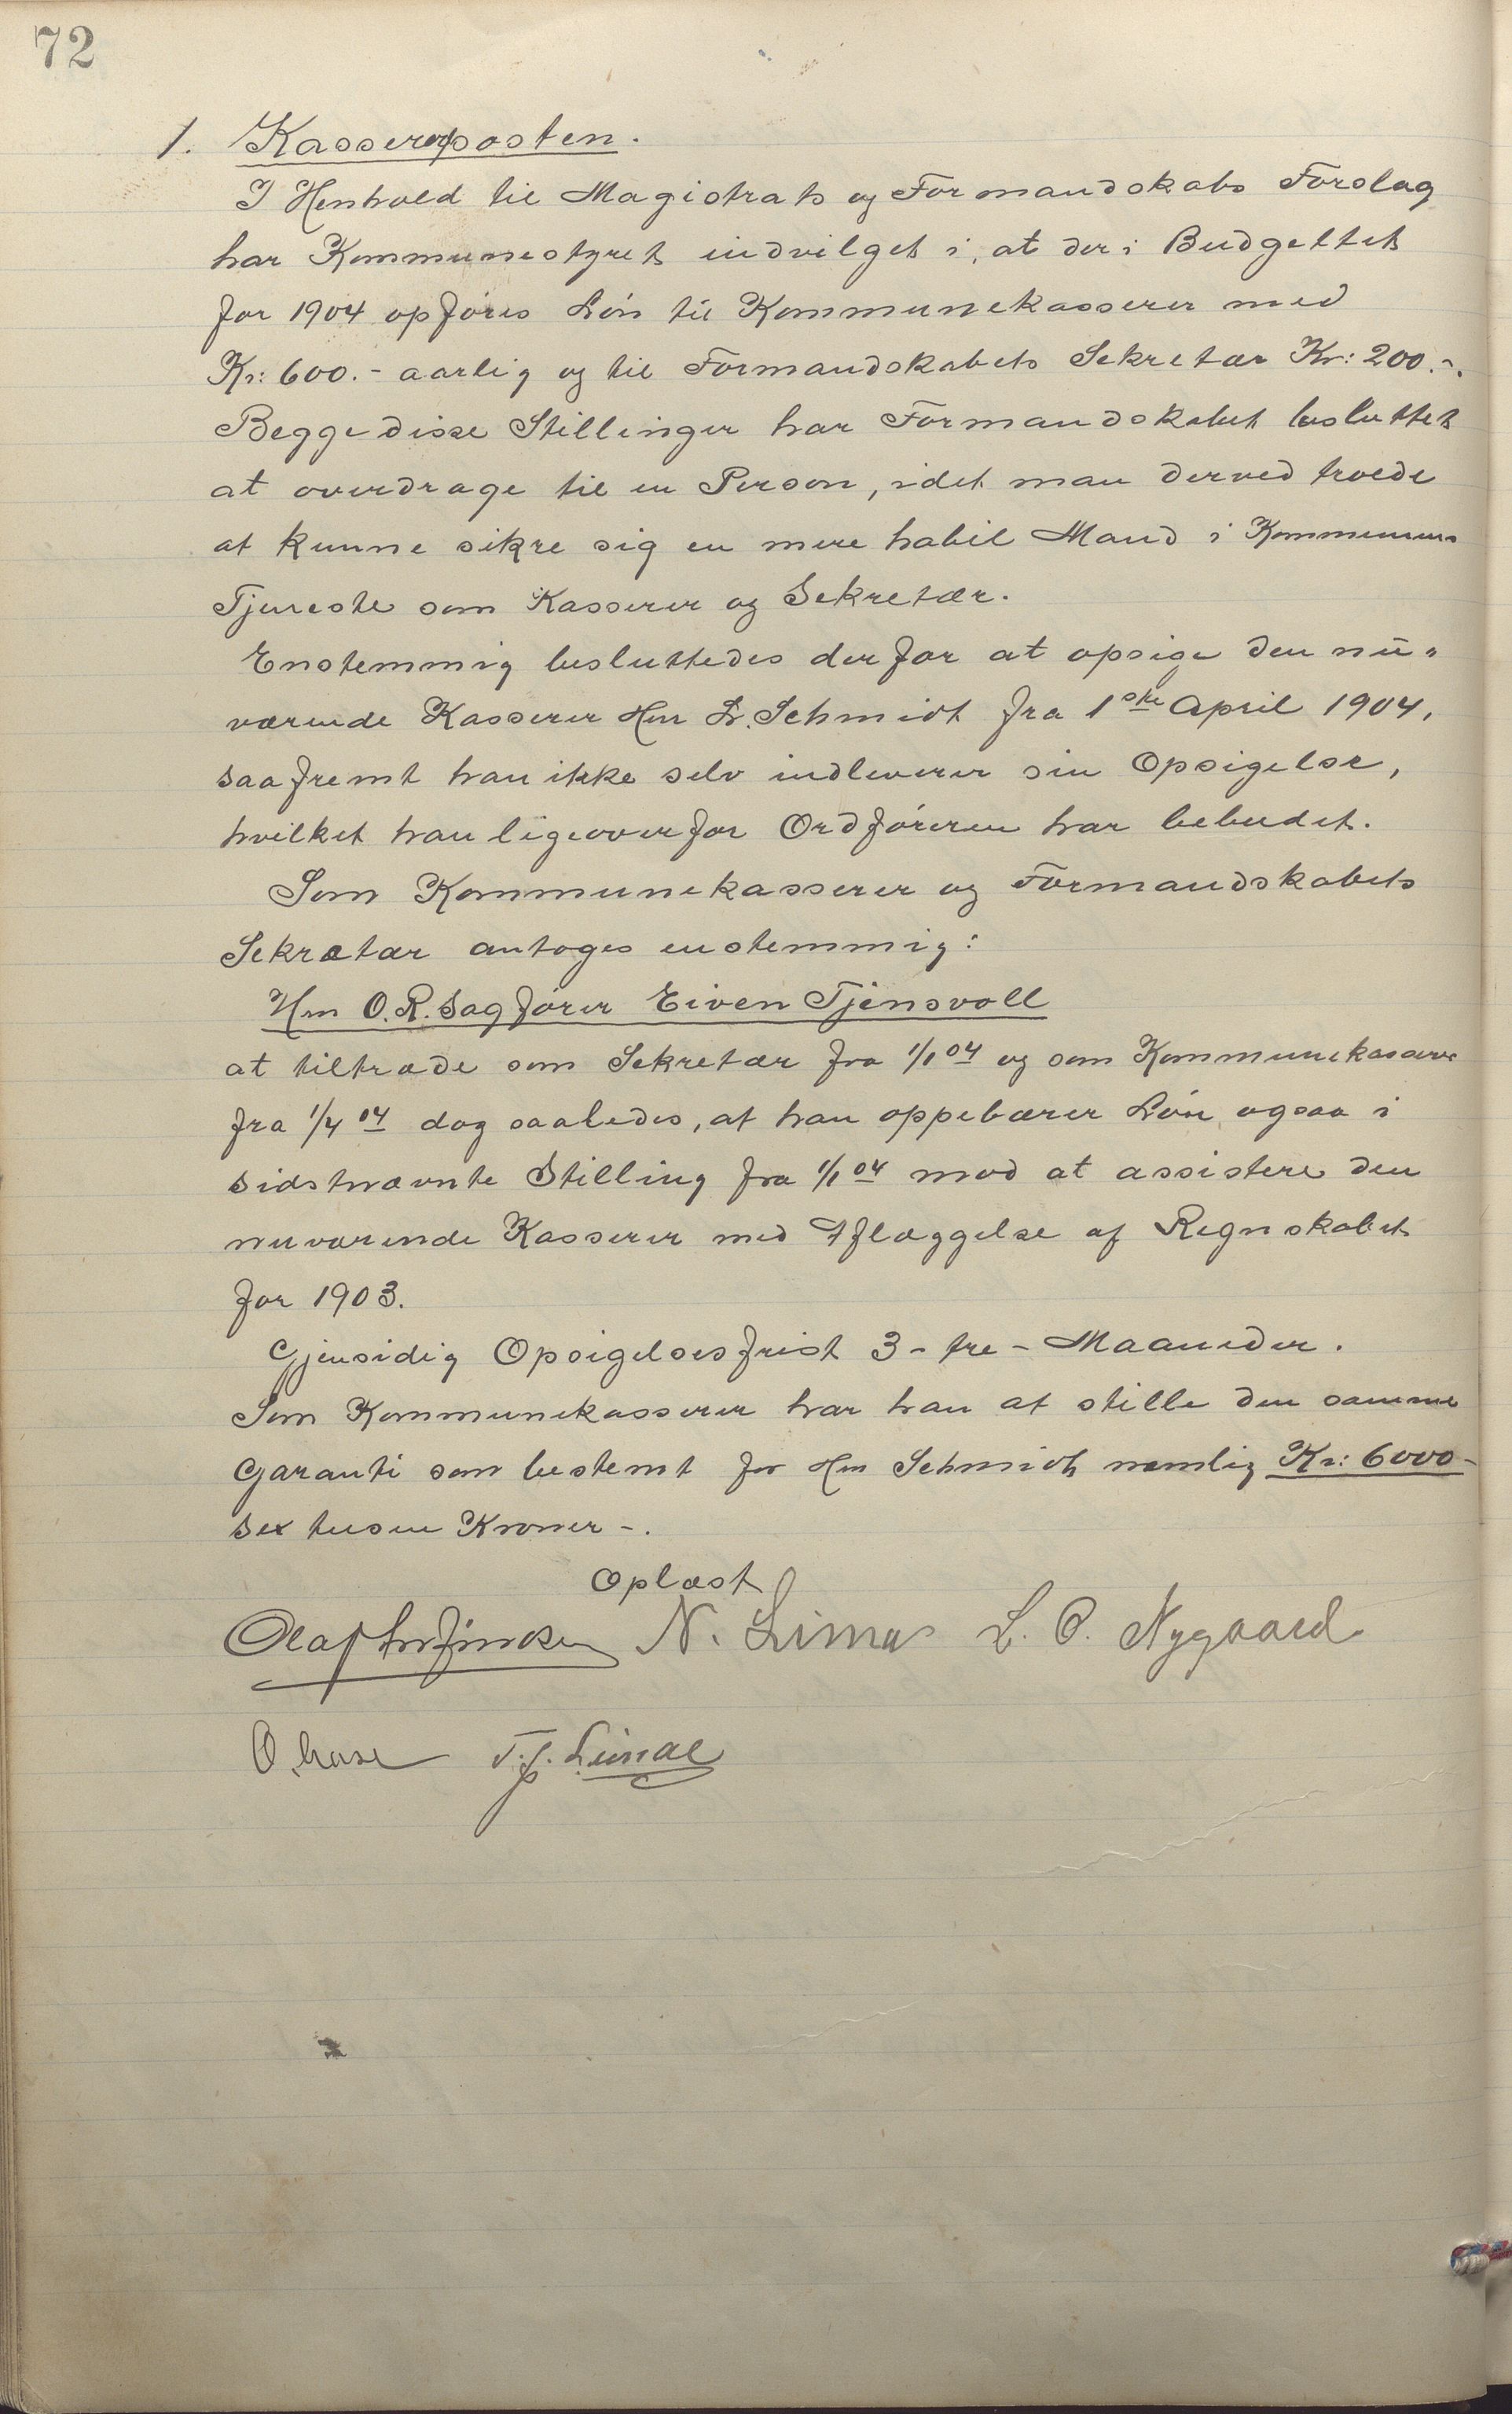 72
1. Kassererposten.
I Henhold til Magistrats og Formandskabs Forslag
har Kommunestyret indvilget i, at der i Budgettet
for 1904 opføres Løn til Kommunekasserer med
Kr: 600.- aarlig og til Formandskabets Sekretær Kr: 200.-.
Begge disse Stillinger har Formandskabet besluttet
at overdrage til en Person, idet man derved troede
at kunne sikre sig en mere habil Mand i Kommunens
Tjeneste som Kasserer og Sekretær.
Enstemmig besluttedes derfor at opsige den nu-
værende Kasserer Hrr L. Schmidt fra 1ste April 1904,
saafremt han ikke selv indleverer sin Opsigelse,
hvilket han ligeoverfor Ordføreren har bebudet.
Som Kommunekasserer og Formandskabets
Sekretær antoges enstemmig:
Hrr O.R. Sagfører Eiven Tjensvoll
at tiltræde som Sekretær fra 1/1 04 og som Kommunekasserer
fra 1/4 04 dog saaledes, at han oppebærer Løn ogsaa i
sidstnævnte Stilling fra 1/1 04 mod at assistere den
nuværende Kasserer med Aflæggelse af Regnskabet
for 1903.
Gjensidig Opsigelsesfrist 3 - tre - Maaneder.
Som Kommunekasserer har han at stille den samme
Garanti som bestemt for Hrr Schmidt nemlig Kr: 6000-
sex tusen Kroner -.
Oplæst
N. Lima L. O. Nygaard
T. J. Lunde